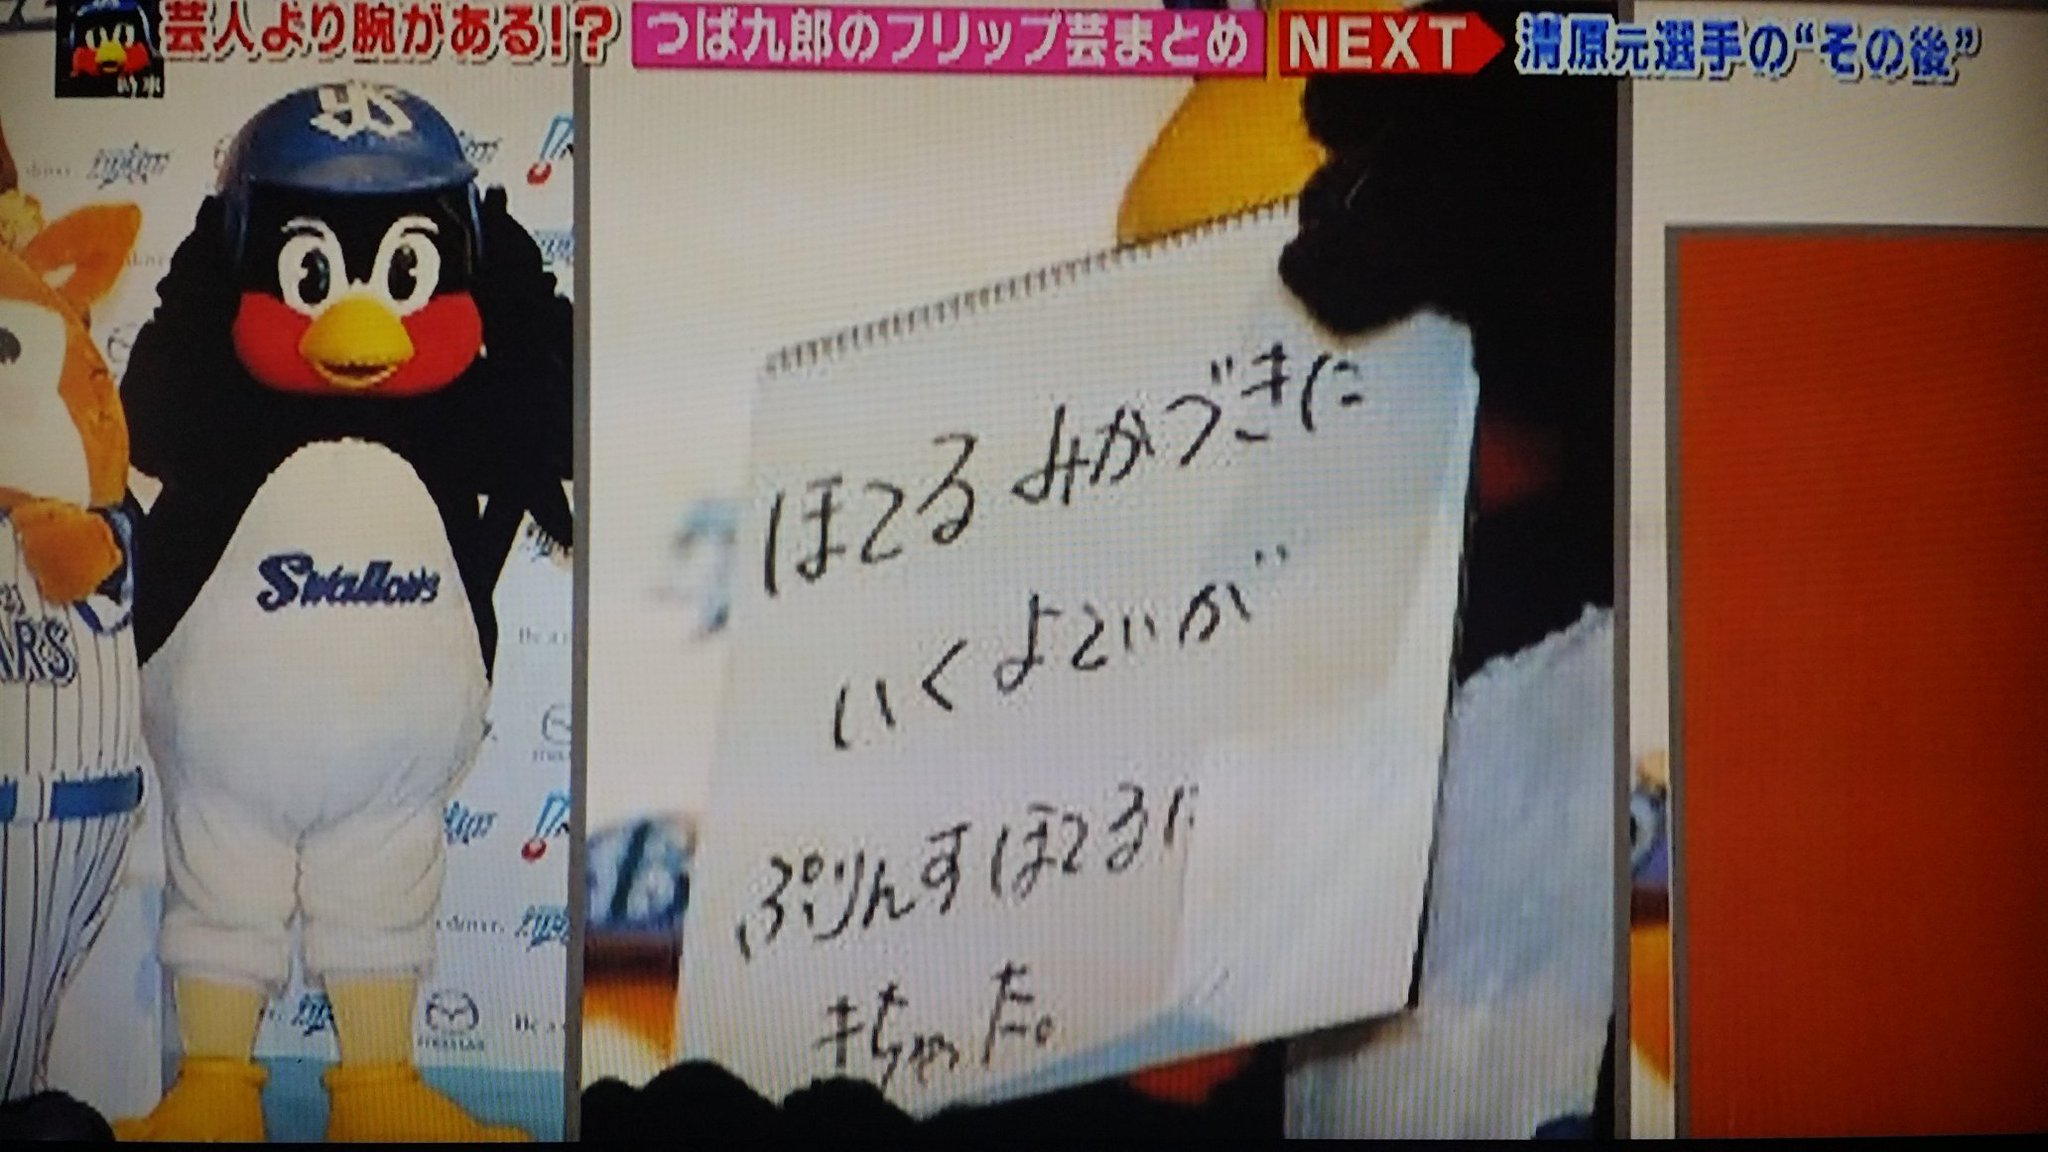 芸人より腕がある!? つば九郎のフリップ芸まとめ NEXT 清原元選手の“その後”
Swallows
ARS
ほてるみかづきに
いくよていが
ぷりんすほてるに
きちゃった。